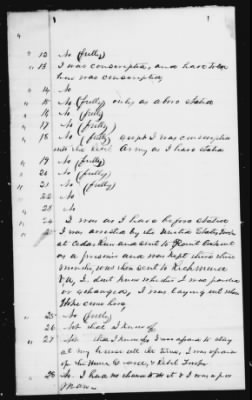 1
12 No (fully)
13 I was conscripted, and have told
how was conscripted
14 No
15 No (fully) only as above stated
16 No (fully)
17 No (fully)
18 No (fully) except I was conscripted
into the Rebel Army as I have stated
19 No (fully)
20 No (fully)
21 No (fully)
22 No
23 No
24 I was as I have before stated
I was arrested by the United States Troops
at Cedar Run and sent to Point Lookout
as a prisoner and was kept there three
months, was then sent to Richmond
Va, I don't know whether I was paroled
or exchanged, I was laying out when
I
25 No (fully)
26 Not that I know of
27 Not that I know of I was afraid to stay
at my house all the time, I was afraid
of the Home Guard, & Rebel Troops
28 No. I had no chance to do it & I was a poor
man